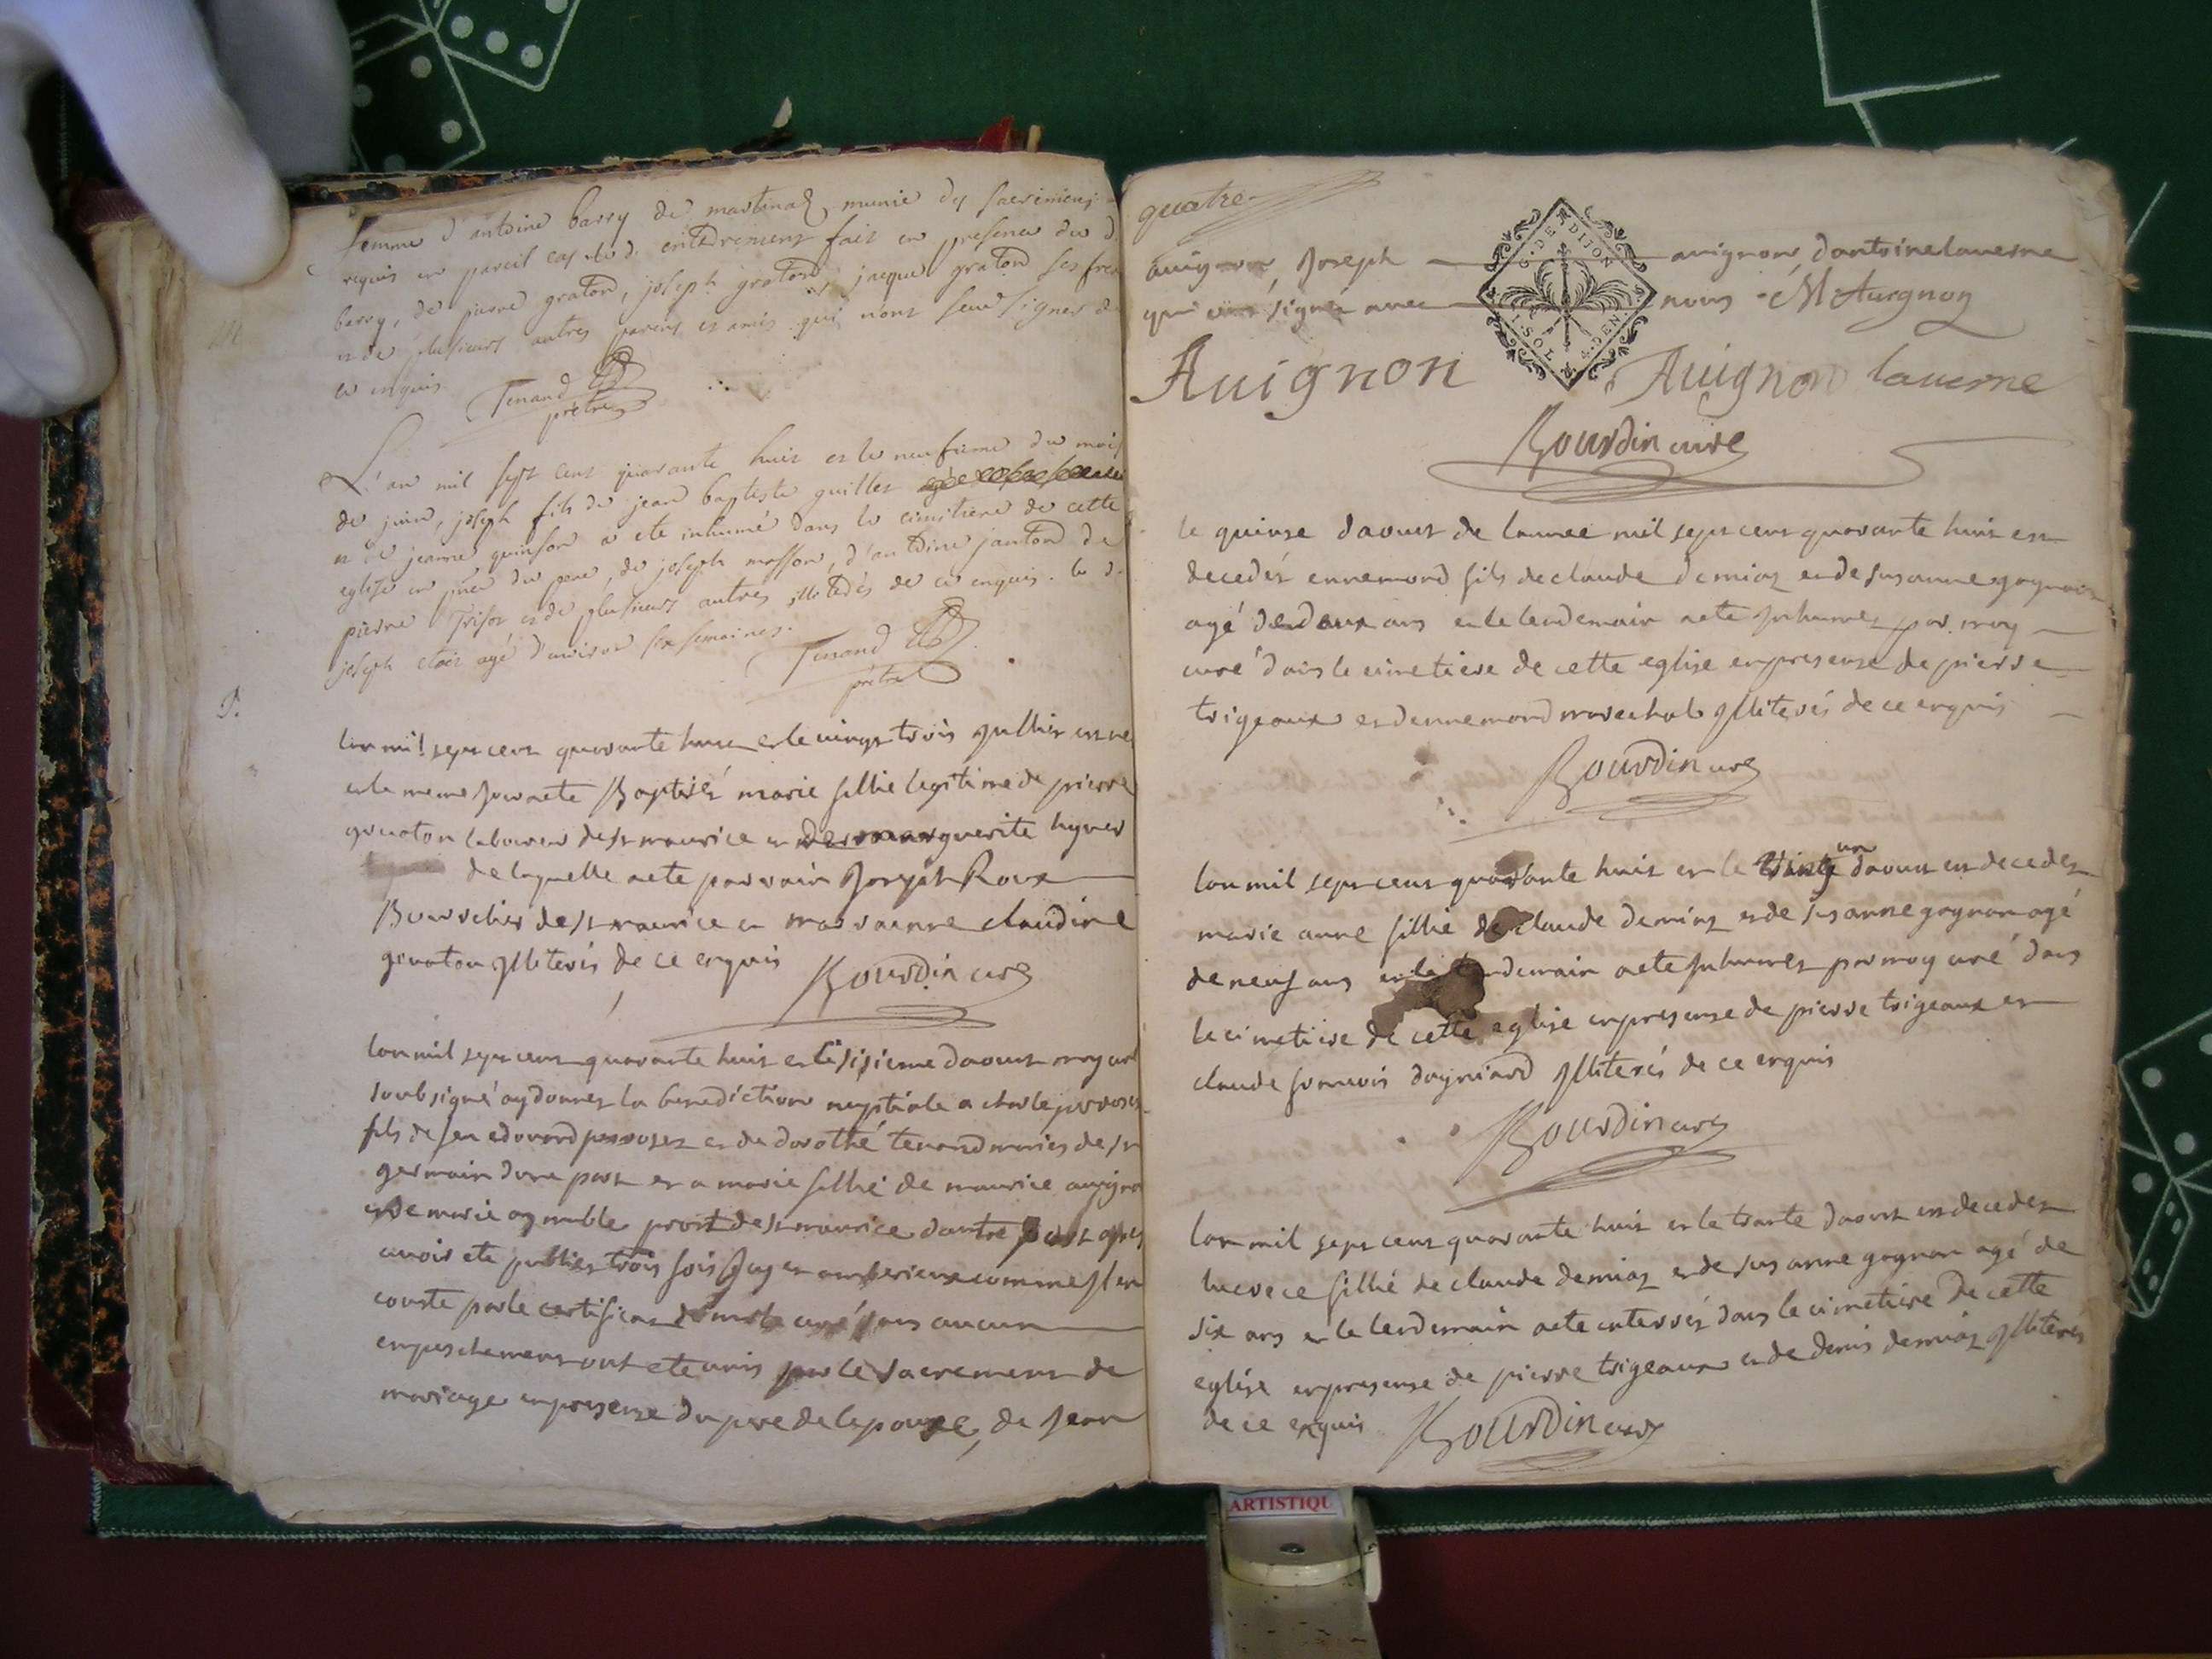 femme d'antoine barry de martinaz, munie des sacrements
requis en pareil cas led. enterrement fait en presence dud.
barry, de pierre graton, joseph graton, jacque graton ses freres
et de plusieurs autres parens et amis qui n'ont sceu signer de
ce enquis
Tenand
prêtre
L'an mil sept cent quarante huit et le neufieme du mois
de juin, joseph fils de jean baptiste guillet
et de jeanne quinson a ete inhumé dans le cimitiere de cette
eglise en pnce du pere, de joseph mosson, d'antoine janton de
pierre Trisot et de plusieurs autres illiterés de ce enquis. led.
joseph etoit agé d'environ six semaines.
Tenand
prêtre
lan mil sept cent quarante huit et le vingt trois juillier est né
et le meme jour a ete Baptisér marie fillie legitime de pierre
gruaton laboureur de st maurice et de marguerite hyver
de laquelle a ete parrain Joseph Roux
Bourrelier de st maurice et marrainne claudine
gruaton illiterés de ce enquis
Bourdin curé
lan mil sept cent quarante huit et le sisieme daoust moy curé
soubsigné ay donnez la benediction nuptiale a charle
fils de feu edouard et de dorothé tenand mariés de st
germain dune part et a marie fillié de maurice avignon
et de marie aymable prost de st maurice dautre part apres
avoir ete publiez trois fois Icy et en amberieux comme Il en
conste par le certificat de mr le curé sans aucun
enpeschement ont ete unis par le sacrement de
mariage enpresense du pere de lepouse, de Jean
quatre
avignon, Joseph avignon, dantoine laverne
qui ont signé avec nous M Avignon
G. DE DIJON
I. SOL 4. DEN
Avignon Avignon laverne
Bourdin curé
le quinse daoust de lannee mil sept cent quarante huit est
decedér ennemond fils de claude demiaz et de susanne gagnon
agé de deux ans et le lendemain a ete Inhumez par moy
curé dans le cimetiere de cette eglise enpresense de pierre
trigeaux et dennemond marechal Illiterés de ce enquis
Bourdin curé
lan mil sept cent quarante huit et le un daoust est decedez
marie anne fillié de claude demiaz et de susanne gagnon agé
de neuf ans et le lendemain a ete Inhumez par moy curé dans
le cimetiere de cette eglise enpresense de pierre trigeaux et
claude Illiterés de ce enquis
Bourdin curé
lan mil sept cent quarante huit et le trante daoust est decedez
lucrece fillié de claude demiaz et de susanne gagnon agé de
six ans et le lendemain a ete enterrér dans le cimetiere de cette
eglise enpresense de pierre trigeaux et de denis demiaz Illiterés
de ce enquis Bourdin curé
ARTISTIQU